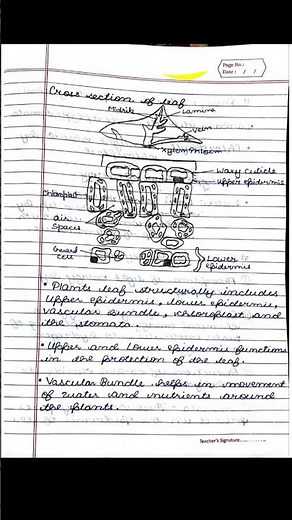 Page No.:
Date: / /
Cross section of leaf
Midrib
Lamina
Vein
Xylem Phloem
Waxy Cuticle
upper epidermis
Chloroplast
Air
Spaces
Guard
Cell
Lower
Epidermis
• Plants leaf structurally includes
Upper epidermis, lower epidermis,
Vascular Bundle, chloroplast and
the stomata.
• Upper and lower epidermis functions
in the protection of the leaf.
• Vascular Bundle helps in movement
of water and nutrients around
the plants.
Teacher's Signature